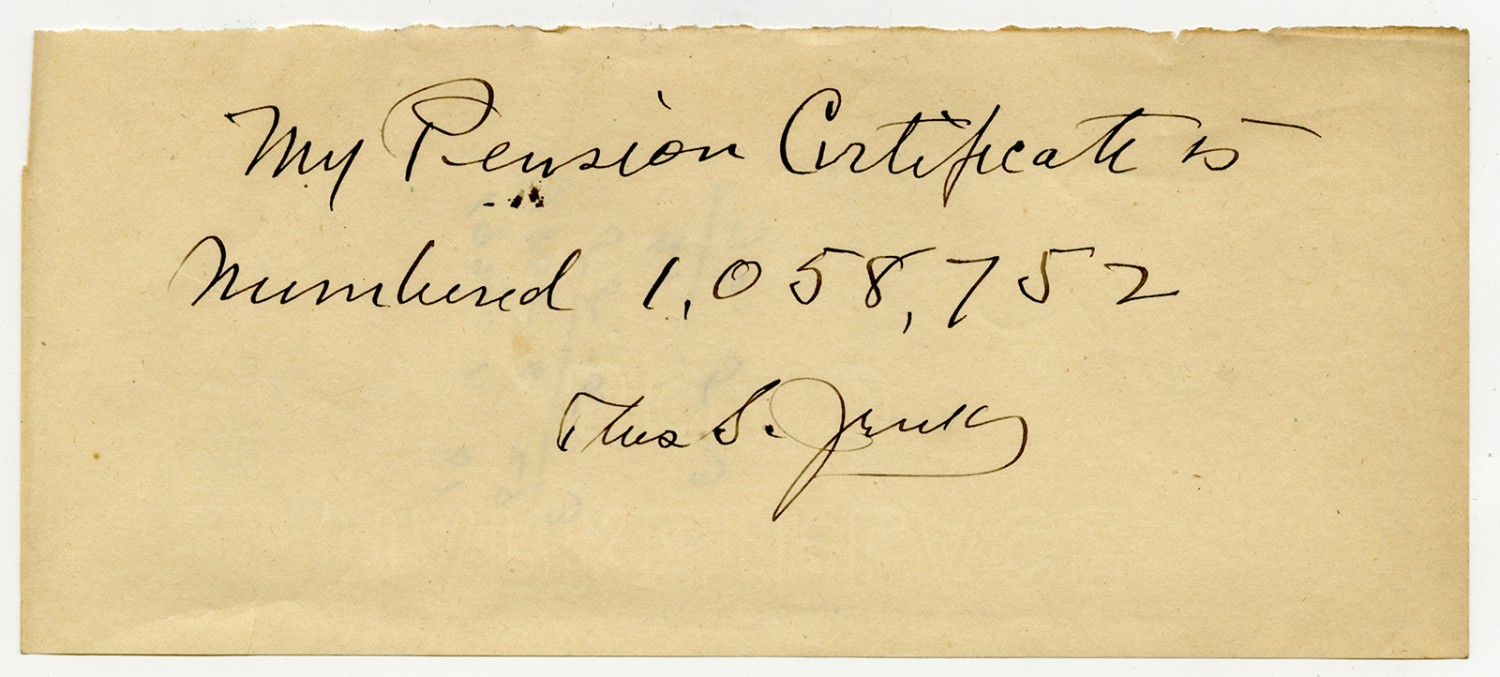 My Pension Certificate is
Numbered 1,058,752
Thos S.